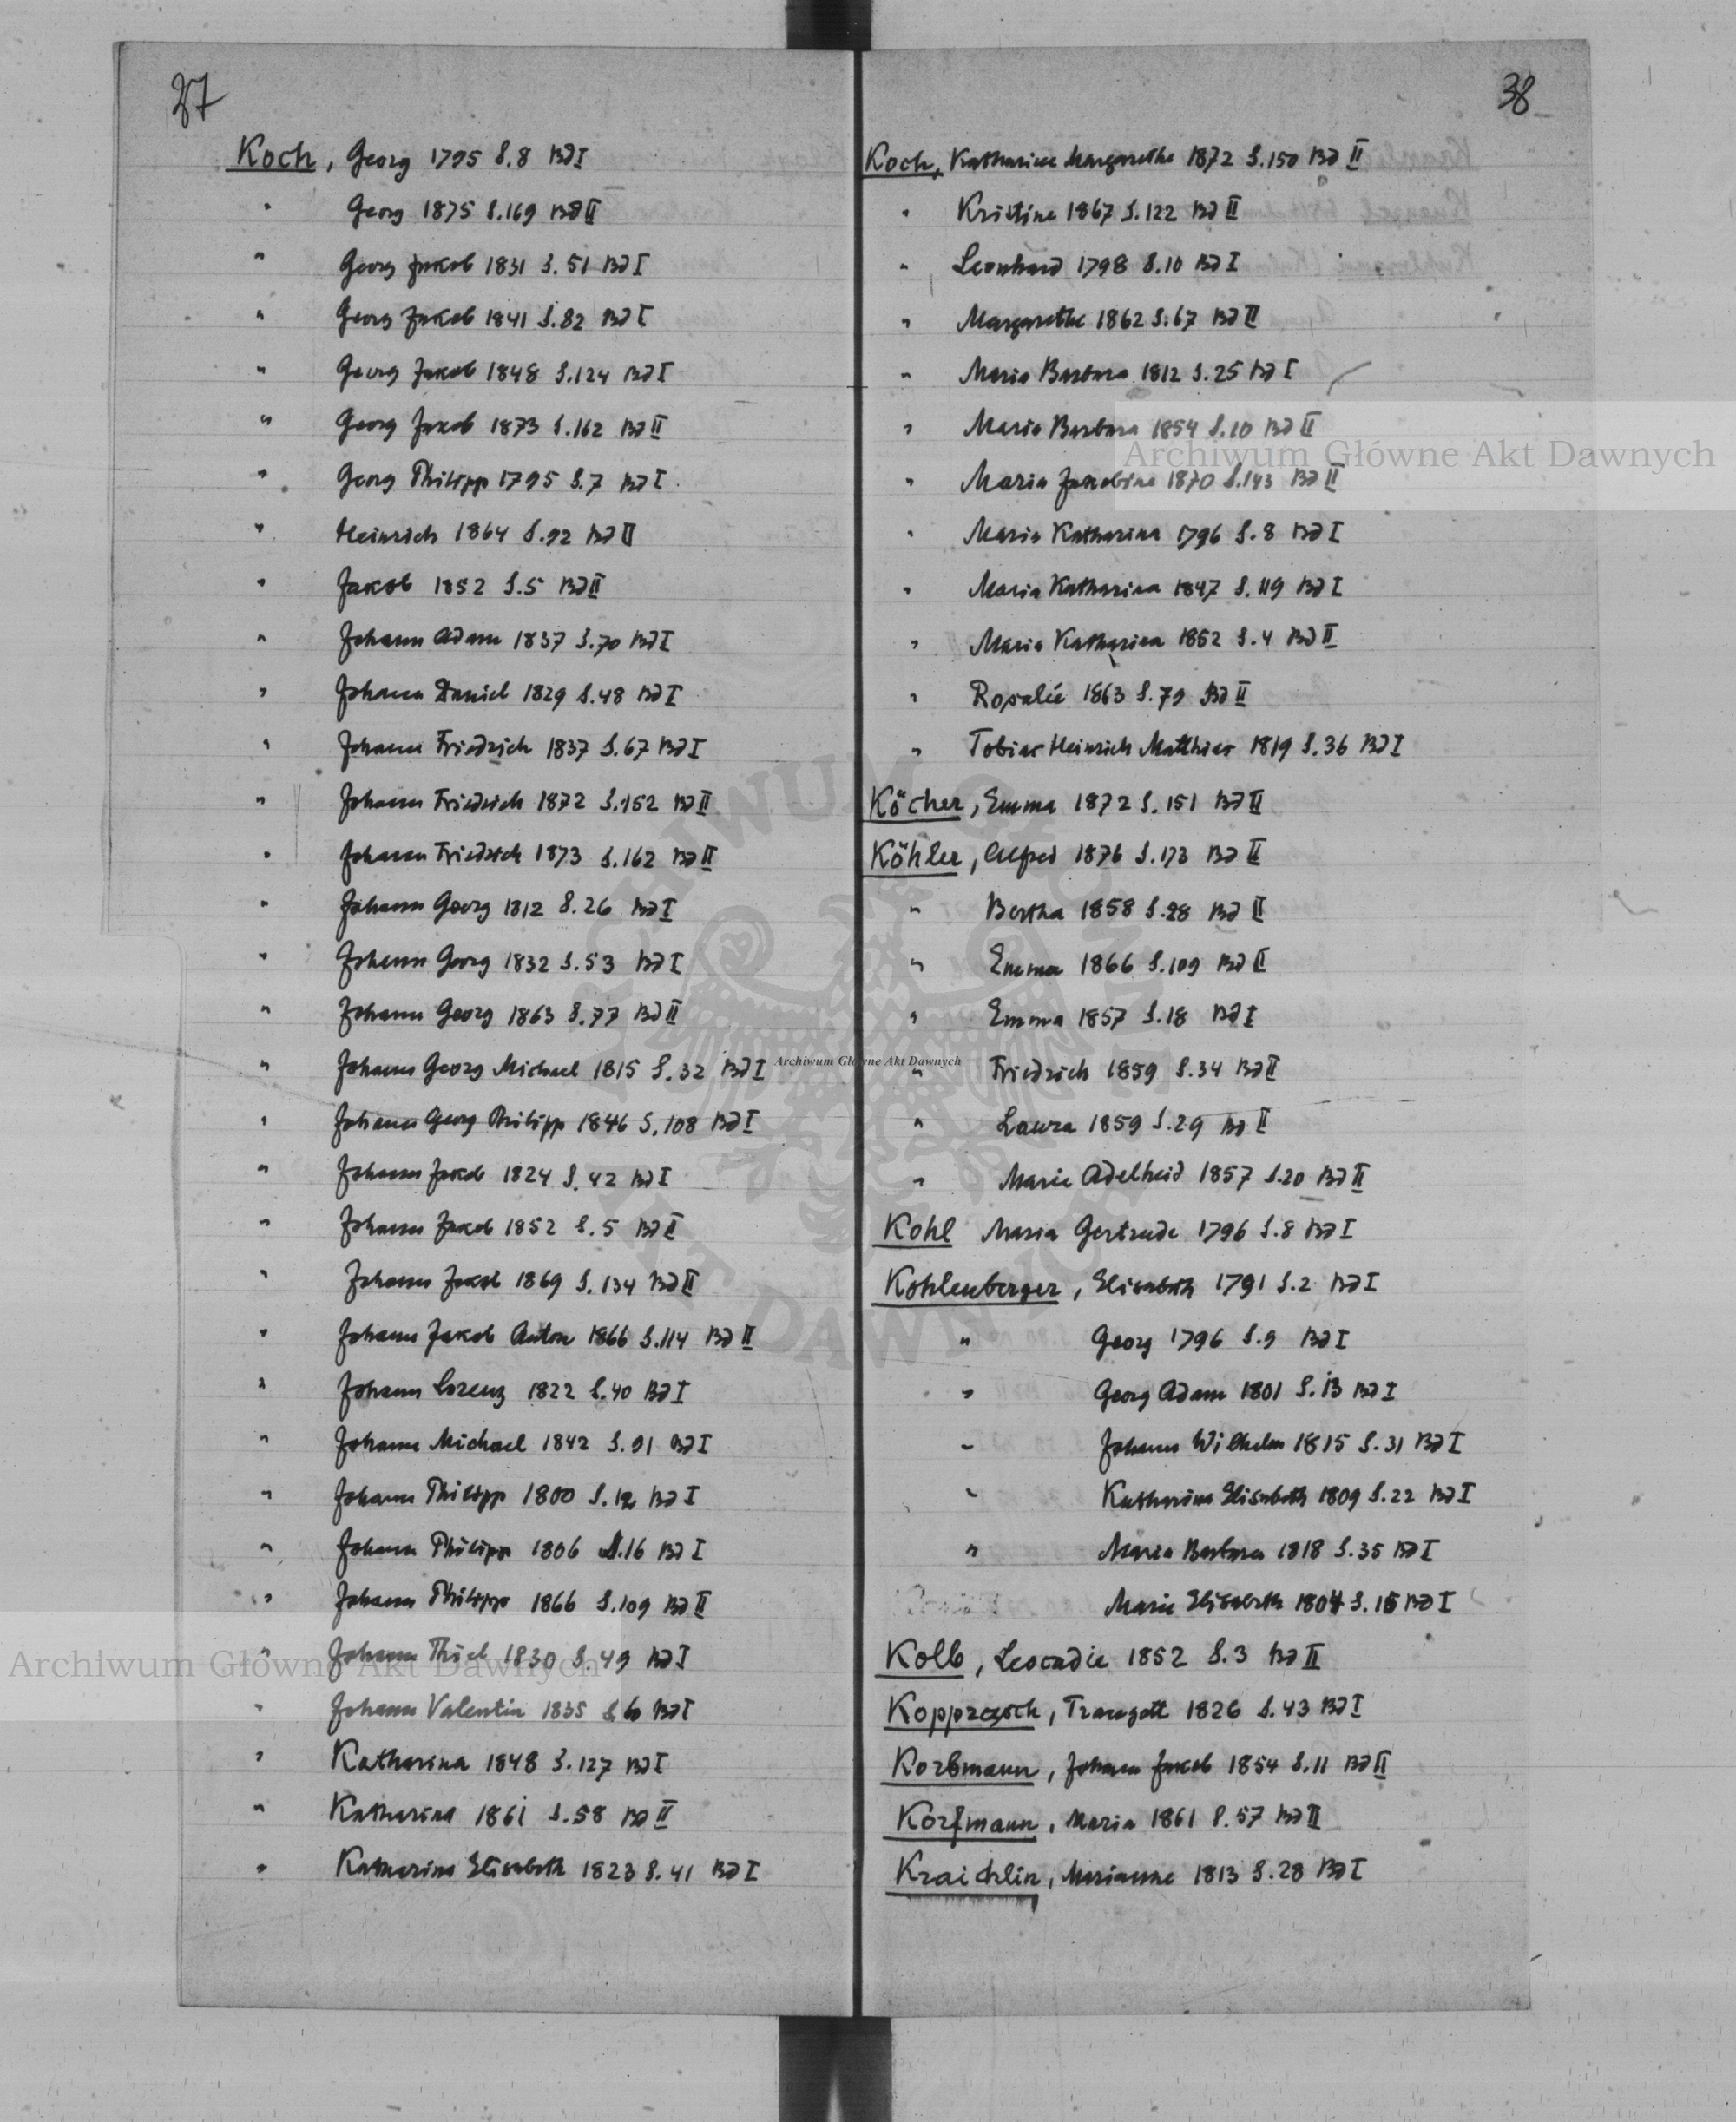 37
Koch, Georg 1795 S.8 Bd I
" Georg 1875 S.169 Bd II
" Georg Jakob 1831 S.51 Bd I
" Georg Jakob 1841 S.82 Bd I
" Georg Jakob 1848 S.124 Bd I
" Georg Jakob 1873 S.162 Bd II
" Georg Philipp 1795 S.7 Bd I
" Heinrich 1864 S.92 Bd II
" Jakob 1852 S.5 Bd II
" Johann Adam 1837 S.70 Bd I
" Johann Daniel 1829 S.48 Bd I
" Johann Friedrich 1837 S.67 Bd I
" Johann Friedrich 1872 S.152 Bd II
" Johann Friedrich 1873 S.162 Bd II
" Johann Georg 1812 S.26 Bd I
" Johann Georg 1832 S.53 Bd I
" Johann Georg 1863 S.77 Bd II
" Johann Georg Michael 1815 S.32 Bd I
" Johann Georg Philipp 1846 S.108 Bd I
" Johann Jakob 1824 S.42 Bd I
" Johann Jakob 1852 S.5 Bd II
" Johann Jakob 1869 S.134 Bd II
" Johann Jakob Anton 1866 S.114 Bd II
" Johann Lorenz 1822 S.40 Bd I
" Johann Michael 1842 S.91 Bd I
" Johann Philipp 1800 S.12 Bd I
" Johann Philipp 1806 S.16 Bd I
" Johann Philipp 1866 S.109 Bd II
" Johann Thiel 1830 S.49 Bd I
" Johann Valentin 1835 Bd I
" Katharina 1848 S.127 Bd I
" Katharina 1861 S.58 Bd II
" Katharina Elisabeth 1823 S.41 Bd I
38
Koch, Katharina Margarethe 1872 S.150 Bd II
" Kristine 1867 S.122 Bd II
" Leonhard 1798 S.10 Bd I
" Margarethe 1862 S.67 Bd II
" Maria Barbara 1812 S.25 Bd I
" Maria Barbara 1854 S.10 Bd II
" Maria Jakobine 1870 S.143 Bd II
" Maria Katharina 1796 S.8 Bd I
" Maria Katharina 1847 S.119 Bd I
" Maria Katharina 1852 S.4 Bd II
" Rosalie 1863 S.79 Bd II
" Tobias Heinrich Matthias 1819 S.36 Bd I
Köcher, Emma 1872 S.151 Bd II
Köhler, Alfred 1876 S.173 Bd II
" Bertha 1858 S.28 Bd II
" Emma 1866 S.109 Bd II
" Emma 1857 S.18 Bd I
" Friedrich 1859 S.34 Bd II
" Laura 1859 S.29 Bd II
" Marie Adelheid 1857 S.20 Bd II
Kohl Maria Gertrude 1796 S.8 Bd I
Kohlenberger, Elisabeth 1791 S.2 Bd I
" Georg 1796 S.9 Bd I
" Georg Adam 1801 S.13 Bd I
" Johann Wilhelm 1815 S.31 Bd I
" Katharina Elisabeth 1809 S.22 Bd I
" Maria Barbara 1818 S.35 Bd I
Marie Elisabeth 1804 S.15 Bd I
Kolb, Leocadie 1852 S.3 Bd II
Kopprasch, Traugott 1826 S.43 Bd I
Korbmann, Johann Jakob 1854 S.11 Bd II
Korfmann, Maria 1861 S.57 Bd II
Kraichlin, Marianne 1813 S.28 Bd I
Archiwum Główne Akt Dawnych
Archiwum Główne Akt Dawnych
Archiwum Główne Akt Dawnych